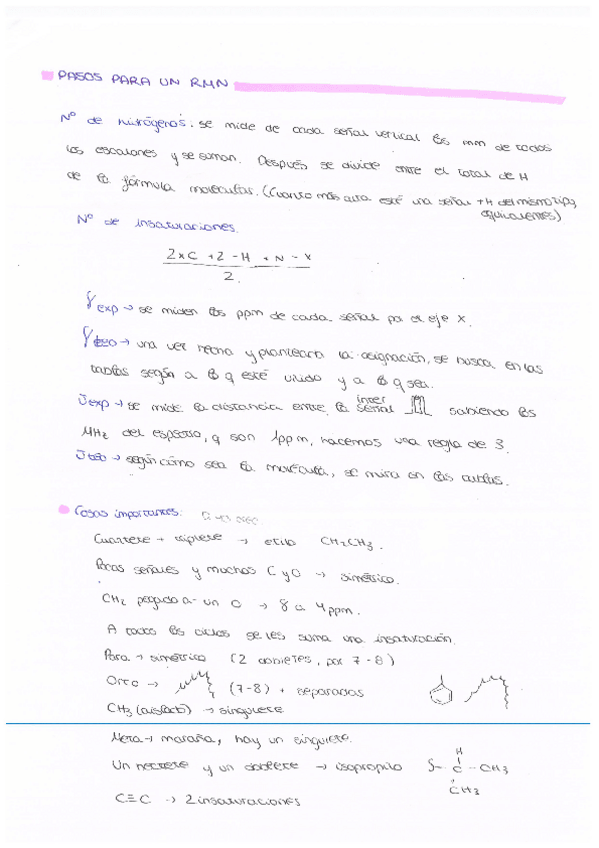 PASOS PARA UN RMN
Nº de hidrógenos. se mide de cada señal vertical los mm de todos
los escalones y se suman. Después se divide entre el total de H
de la fórmula molecular. (Cuanto más alta esté una señal +H del mismo tipo,
equivalentes)
Nº de insaturaciones.
2xC + 2 - H + N - X
2.
γ exp → se miden los ppm de cada señal por el eje X.
γ teo → una vez hecha y planteada la asignación, se busca en las
tablas según a lo q esté unido y a lo q sea.
Jexp → se mide la distancia entre la inter señal sabiendo los
MHz del espectro, q son 1ppm, hacemos una regla de 3.
Jteo → según cómo sea la molécula, se mira en las tablas.
Cosas importantes:
Cuartete + triplete → etilo CH2CH3.
Pocas señales y muchos C y O → simétrico.
CH2 pegado a un O → γ a 4ppm.
A todos los ciclos se les suma una insaturación.
Para → simétrico (2 dobletes, por 7-8)
Orto → (7-8) + separados
CH3 (aislado) → singulete
Meta → maraña, hay un singulete.
Un y un doblete → isopropilo
H
C - CH3
CH3
C≡C → 2 insaturaciones